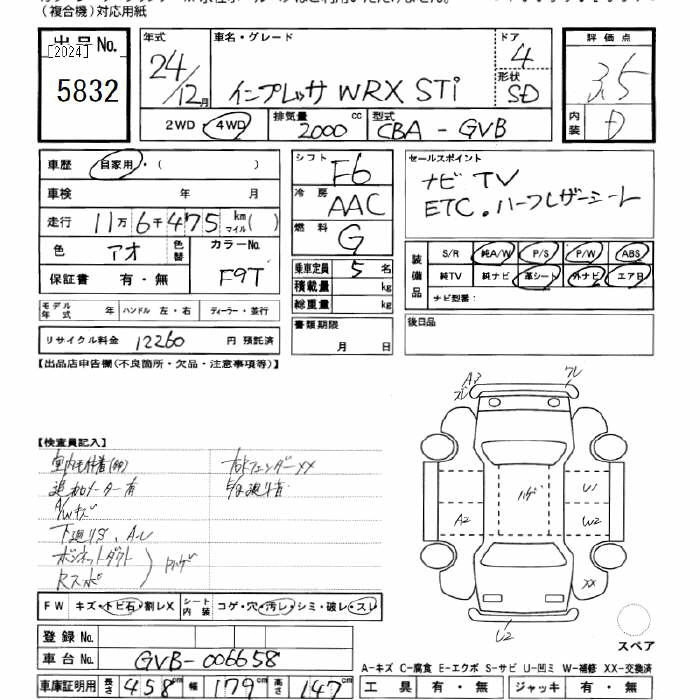 (複合機)対応用紙
出品No.
[2024]
5832
年式
24/12月
車名・グレード
インプレッサ WRX STi
ドア
4
形状
SD
評価点
3.5
内装
D
2WD・4WD
排気量
2000 cc
型式
CBA-GVB
車歴 自家用・( )
車検 年 月
走行 11万6千475 km マイル( )
色 アオ 色替
カラーNo.
F9T
保証書 有・無
シフト
F6
冷房
AAC
燃料
G
乗車定員 5 名
積載量 kg
総重量 kg
セールスポイント
ナビ TV
ETC.ハーフレザーシート
装備品
S/R 純A/W P/S P/W ABS
純TV 純ナビ 革シート 外ナビ エア B
ナビ型番:
モデル年式 年 ハンドル 左・右 ディーラー・並行
リサイクル料金 12260 円 預託済
書類期限
月 日
後日品
【出品店申告欄(不良箇所・欠品・注意事項等)】
【検査員記入】
追加メーター有
A/Wキズ
ボンネットダクト
右Fフェンダーxx
A3
ハゲ
U1
A2
W2
xx
U2
スペア
FW キズ・トビ石・割レX
シート内装 コゲ・穴・汚レ・シミ・破レ・スレ
登録No.
車台No. GVB-006658
車庫証明用 長さ 458cm 幅 179cm 高さ 147cm
A-キズ C-腐食 E-エクボ S-サビ U-凹ミ W-補修 XX-交換済
工具 有・無 ジャッキ 有・無